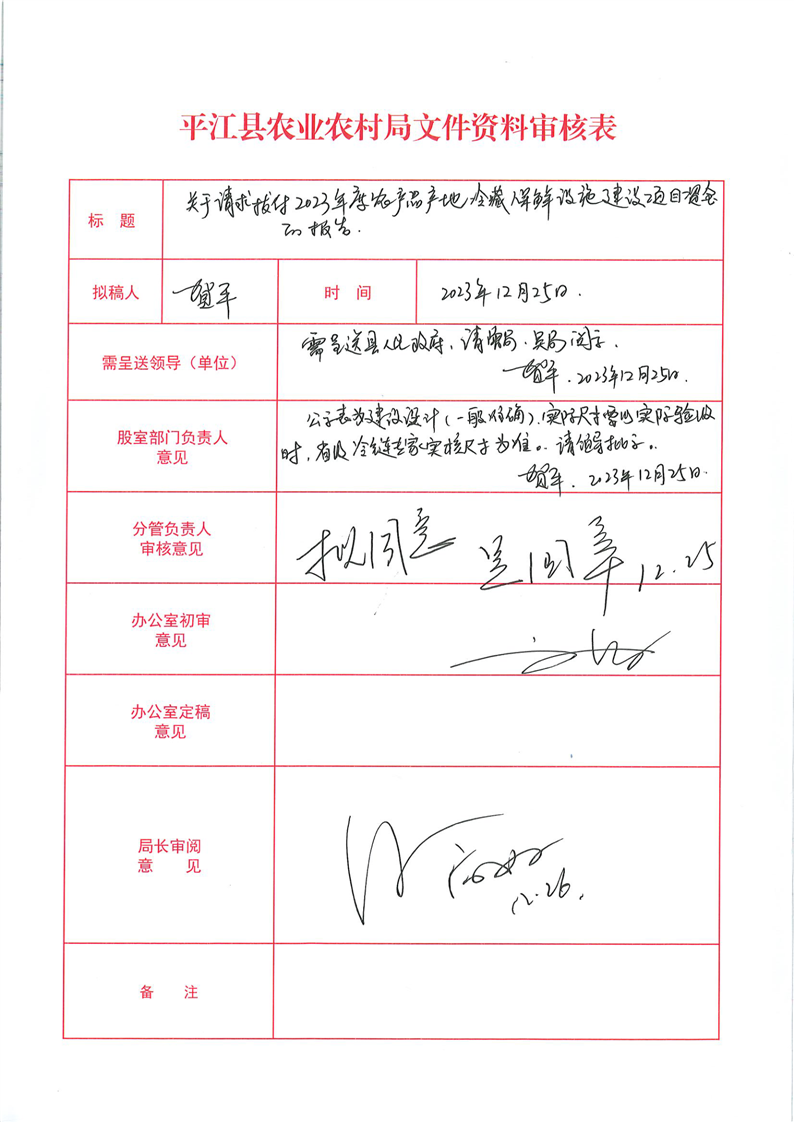 平江县农业农村局文件资料审核表
标 题
关于请求拨付2023年度农产品产地冷藏保鲜设施建设项目资金
的报告.
拟稿人
贺平
时 间
2023年12月25日.
需呈送领导（单位）
需呈送县人民政府，请 局、吴局阅示.
贺平.2023年12月25日.
股室部门负责人
意见
公示表为建设设计（一般准确），实际尺寸需以实际验收
时，省级冷链专家实核尺寸为准。请领导批示。
贺平.2023年12月25日.
分管负责人
审核意见
拟同意
12.25
办公室初审
意见
办公室定稿
意见
局长审阅
意 见
12.26.
备 注